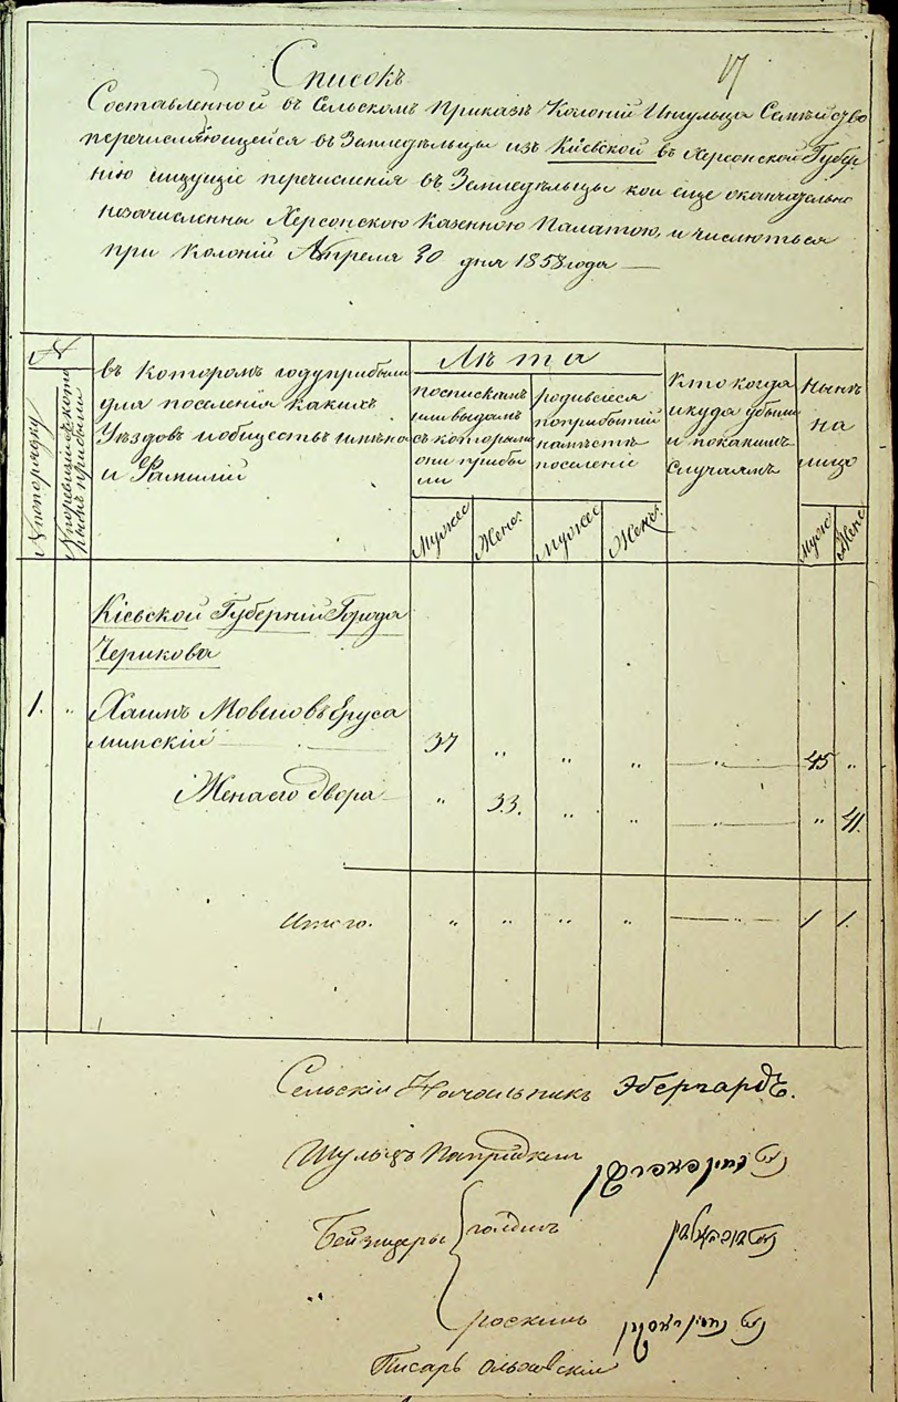 17
Списокъ
Составленной въ Сельскомъ Приказѣ Колоніи Ингульца Семѣйство
перечисляющейся въ Земледѣльцы изъ Кіевской въ Херсонской Губер
нію ищущіе перечисленія въ Земледѣльцы кои еще окончательно
незачисленны Херсонскою Казенною Палатою, и числються
при Колоніи Апреля 30 дня 1858 года
№
№ попорядку
въ Которомъ году прибыли
для поселенія какихъ
Уѣздовъ и обществъ имѣна
и Фамилій
Лѣта
поспискамъ
или выдамъ
съ которыми
они прибы
ли
родивсіеся
поприбытій
намѣстѣ
поселеніе
Кто когда
и куда убыли
и покакимъ
случаямъ
Нынѣ
на
лицо
Мужес
Женс.
Мужес
Женс.
Муж
Женс
Кіевской Губерній Города
Черикова
1. „ Хаимъ Мовшовъ Еруса
лимскій 37 „ „ „ „ 45 „
Жена его Двора „ 33. „ „ „ „ 41.
Итого. „ „ „ „ „ 1 1.
Сельскій Начальникъ Эбергардъ.
Шульцъ Напридкин
Бейзицеры
„
роскинъ
Писарь Ольховскій